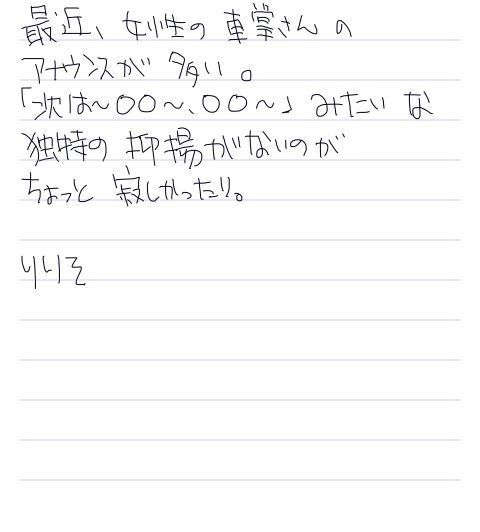 最近、女性の車掌さんの
アナウンスが多い。
「次は～〇〇～、〇〇～」みたいな
独特の抑揚がないのが
ちょっと寂しかったり。
りりぞ